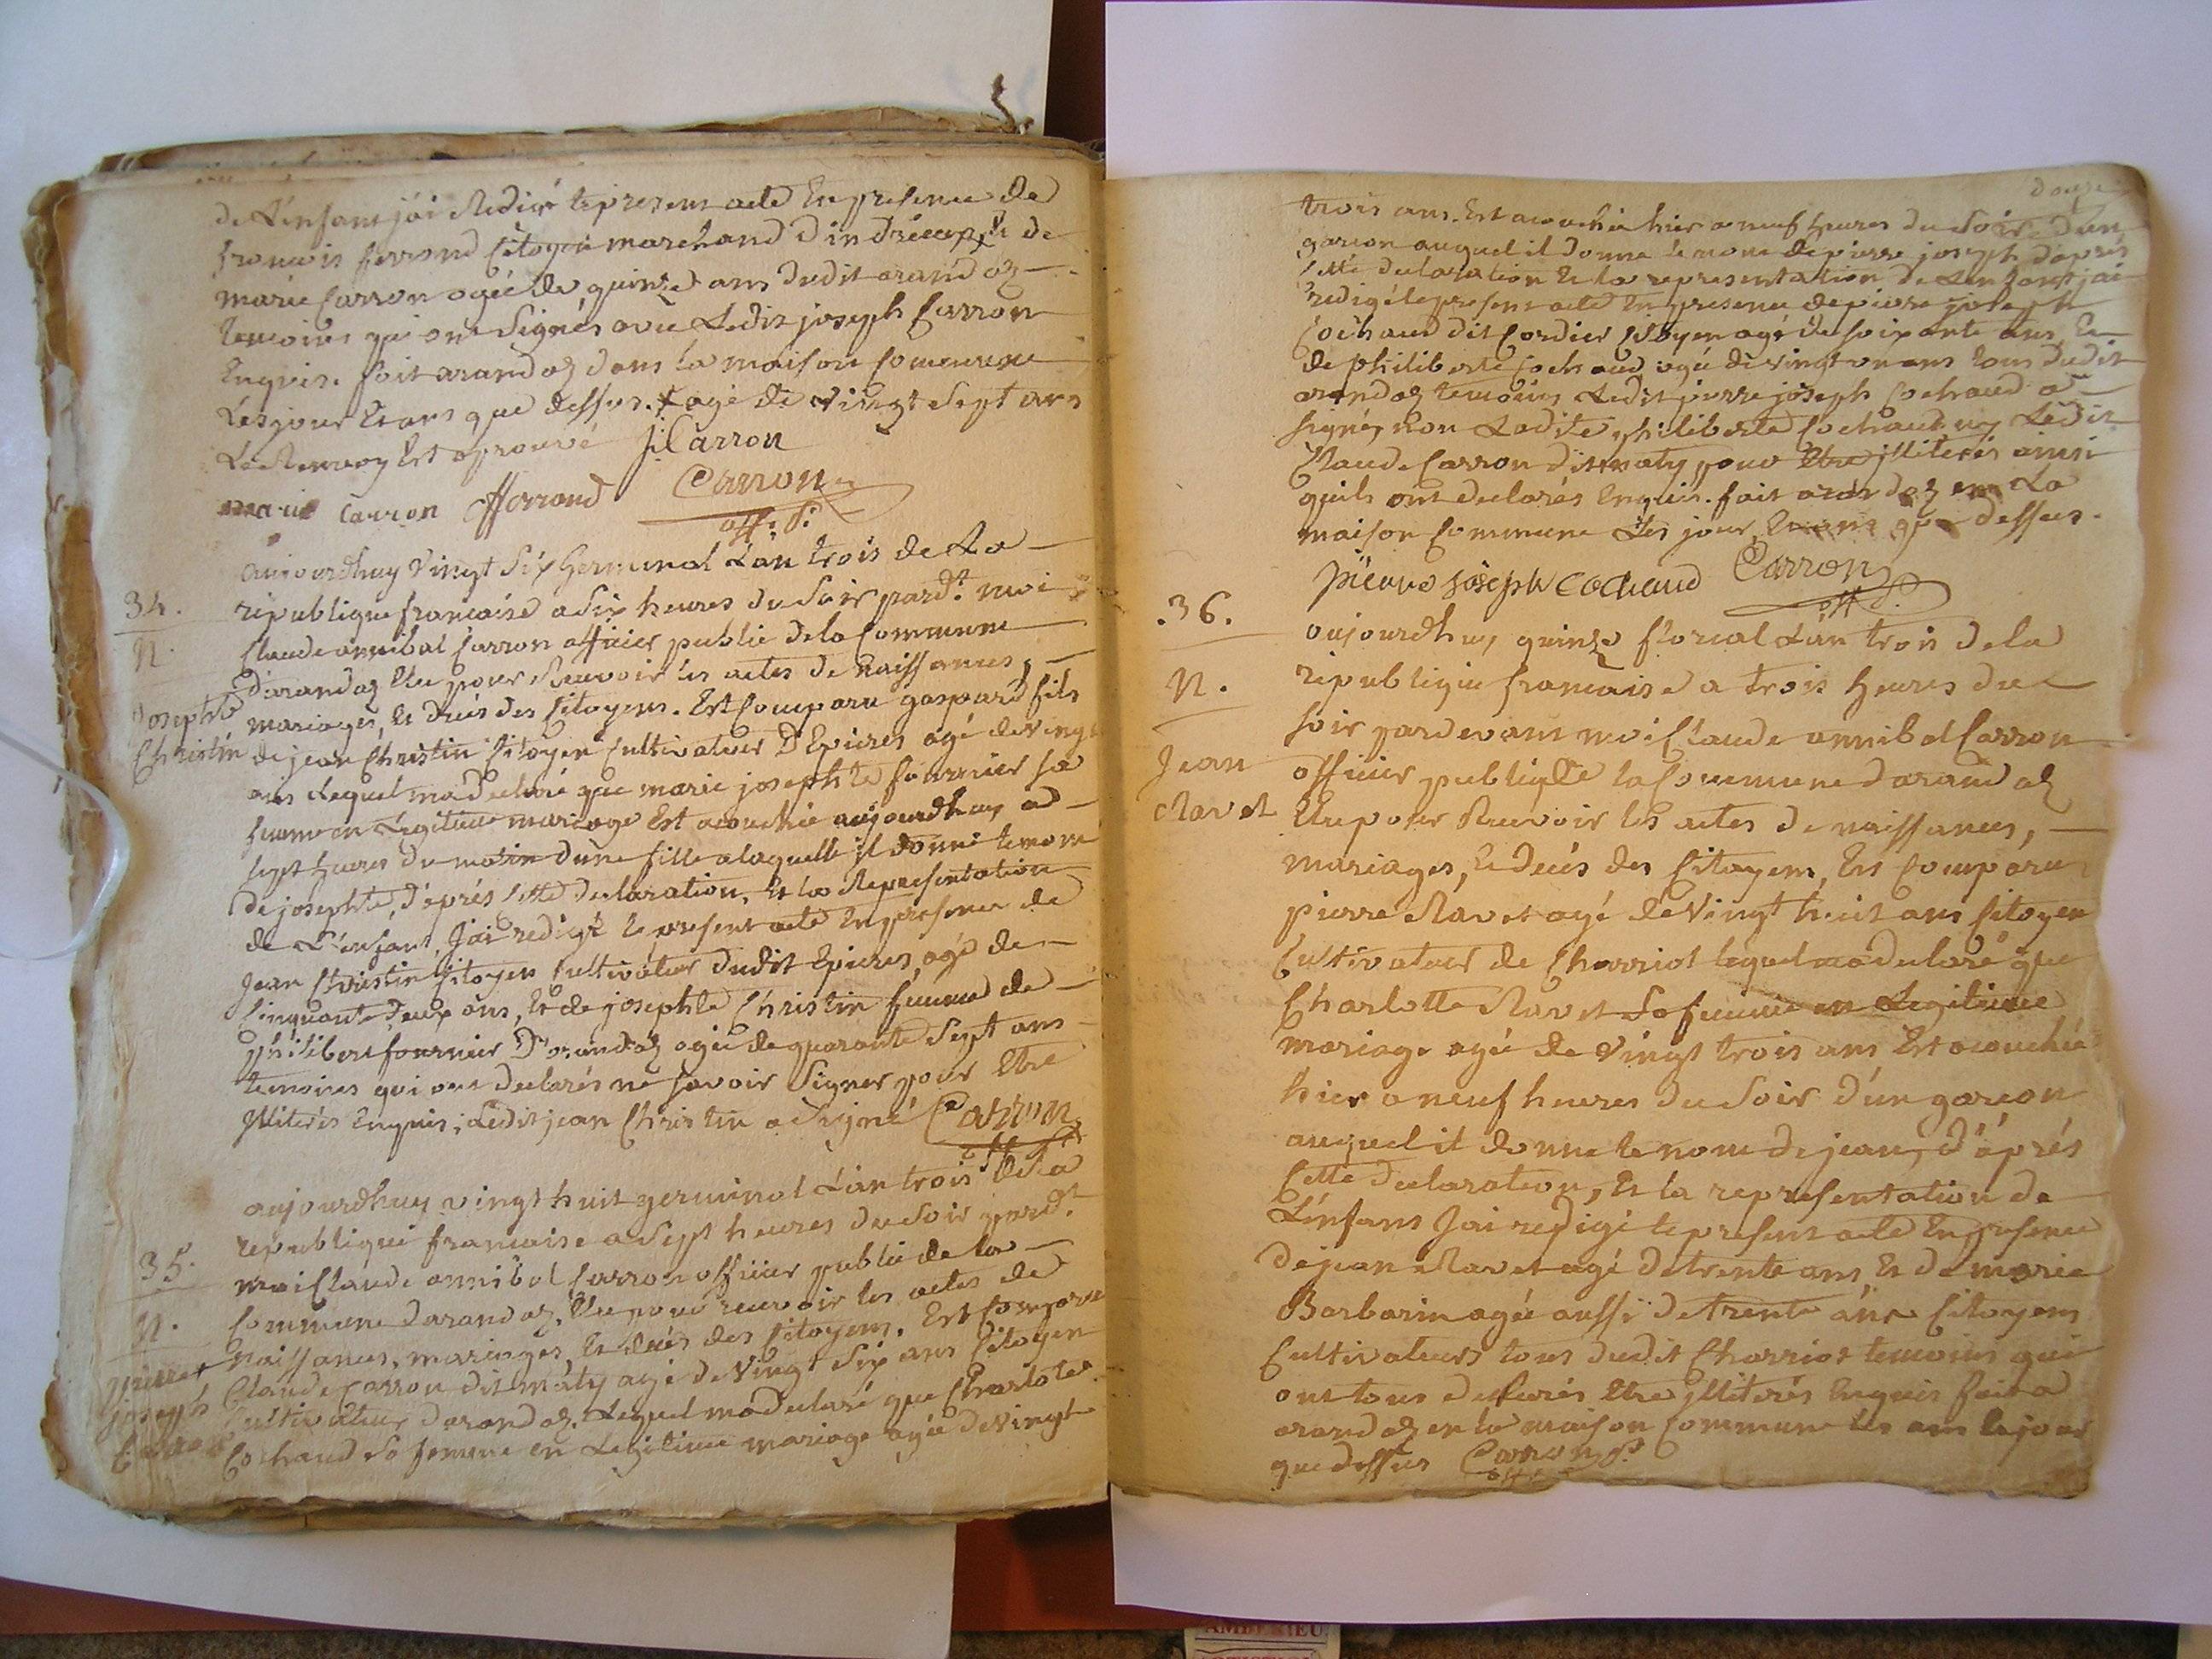 de L'enfant jai Redigé le present acte En presence de
francois ferrand Citoyen marchand d'indrieux, & de
marie Carron agée de quinze ans dudit arandaz
temoins qui ont Signés avec Ledit joseph Carron
Enquis. fait arandaz dans la maison Commune
Les jour Et ans que dessus. + agé de Vingt Sept ans
Le Renvoy Est aprouvé J: Carron
marie Carron fferrand Carron
off: P:
34.
N.
Josephte
Christin
aujourdhuy Vingt Six Germinal L'an trois de La
république francaise a Six heures du Soir pard.t moi
Claude annibal Carron officier public de la Commune
d'arandaz Elu pour Recevoir les actes de Naissances,
mariages, Et décés des Citoyens. Est Comparu gaspard fils
de jean Christin Citoyen Cultivateur D'Epieres agé de vingt
ans Lequel ma declaré que marie josephte fournier sa
femme en Legitime mariage Est acouchée aujourdhuy a
sept heures du matin d'une fille a laquelle il donne le nom
de josephte, d'aprés Cette declaration, Et la Representation
de L'enfant, Jai redigé le present acte En presence de
Jean Christin Citoyen Cultivateur dudit Epieres, agé de
Cinquante deux ans, Et de josephte Christin femme de
philibert fournier D'arandaz agée de quarante Sept ans
temoins qui ont declarés ne savoir Signer pour Etre
jlliterés Enquis, Ledit jean Christin a Signé Carron
off P
35.
N.
pierre
joseph
Carron
aujourdhuy vingt huit germinal L'an trois de La
republique francaise a Sept heures du Soir pard.t
moi Claude annibal Carron officier public de la
Commune darandaz, Elu pour recevoir les actes de
Naissances, mariages, Et décés des Citoyens. Est Comparu
Claude Carron dit maty agé de Vingt Six ans Citoyen
Cultivateur darandaz. Lequel ma declaré que Charlote
Cochaud Sa femme en Legitime mariage agée de Vingt
douze
trois ans. Est acouchée hier a neuf heures du Soir d'un
garcon auquel il donne le nom de pierre joseph d'aprés
Cette declaration Et la representation de L'enfant jai
redigé le present acte En presence de pierre joseph
Cochaud dit Cordier Citoyen agé de soixante ans, Et
de philiberte Cochaud agée de vingt un ans tous dudit
arandaz temoins Ledit pierre joseph Cochaud a
signé, non Ladite philiberte Cochaud ny Ledit
Claude Carron dit maty pour Etre jlliterés ainsi
quils ont declarés Enquis. fait arandaz en La
maison Commune Les jour, Et ans que dessus.
pierre joseph Cochaud Carron
off P.
36.
N.
Jean
Ravet
aujourdhuy quinze florial L'an trois de la
république francaise a trois heures du
soir pardevant moi Claude annibal Carron
officier public de la Commune darandaz
Elu pour Recevoir les actes de naissances,
mariages, Et décés des Citoyens, Est Comparu
pierre Ravet agé de Vingt huit ans Citoyen
Cultivateur de Charriot lequel ma declaré que
Charlotte Ravet Sa femme en Legitime
mariage agée de Vingt trois ans Est acouchée
hier a neuf heures du Soir d'un garcon
auquel il donne le nom de jean, d'aprés
Cette declaration, Et la representation de
L'enfant Jai redigé le present acte En presence
de jean Ravet agé de trente ans, Et de marie
Barbarin agée aussi de trente ans Citoyens
Cultivateurs tous dudit Charriot temoins qui
ont tous declarés Etre jlliterés Enquis fait a
arandaz en la maison Commune les ans Et jour
que dessus Carron P
off
AMBERIEU